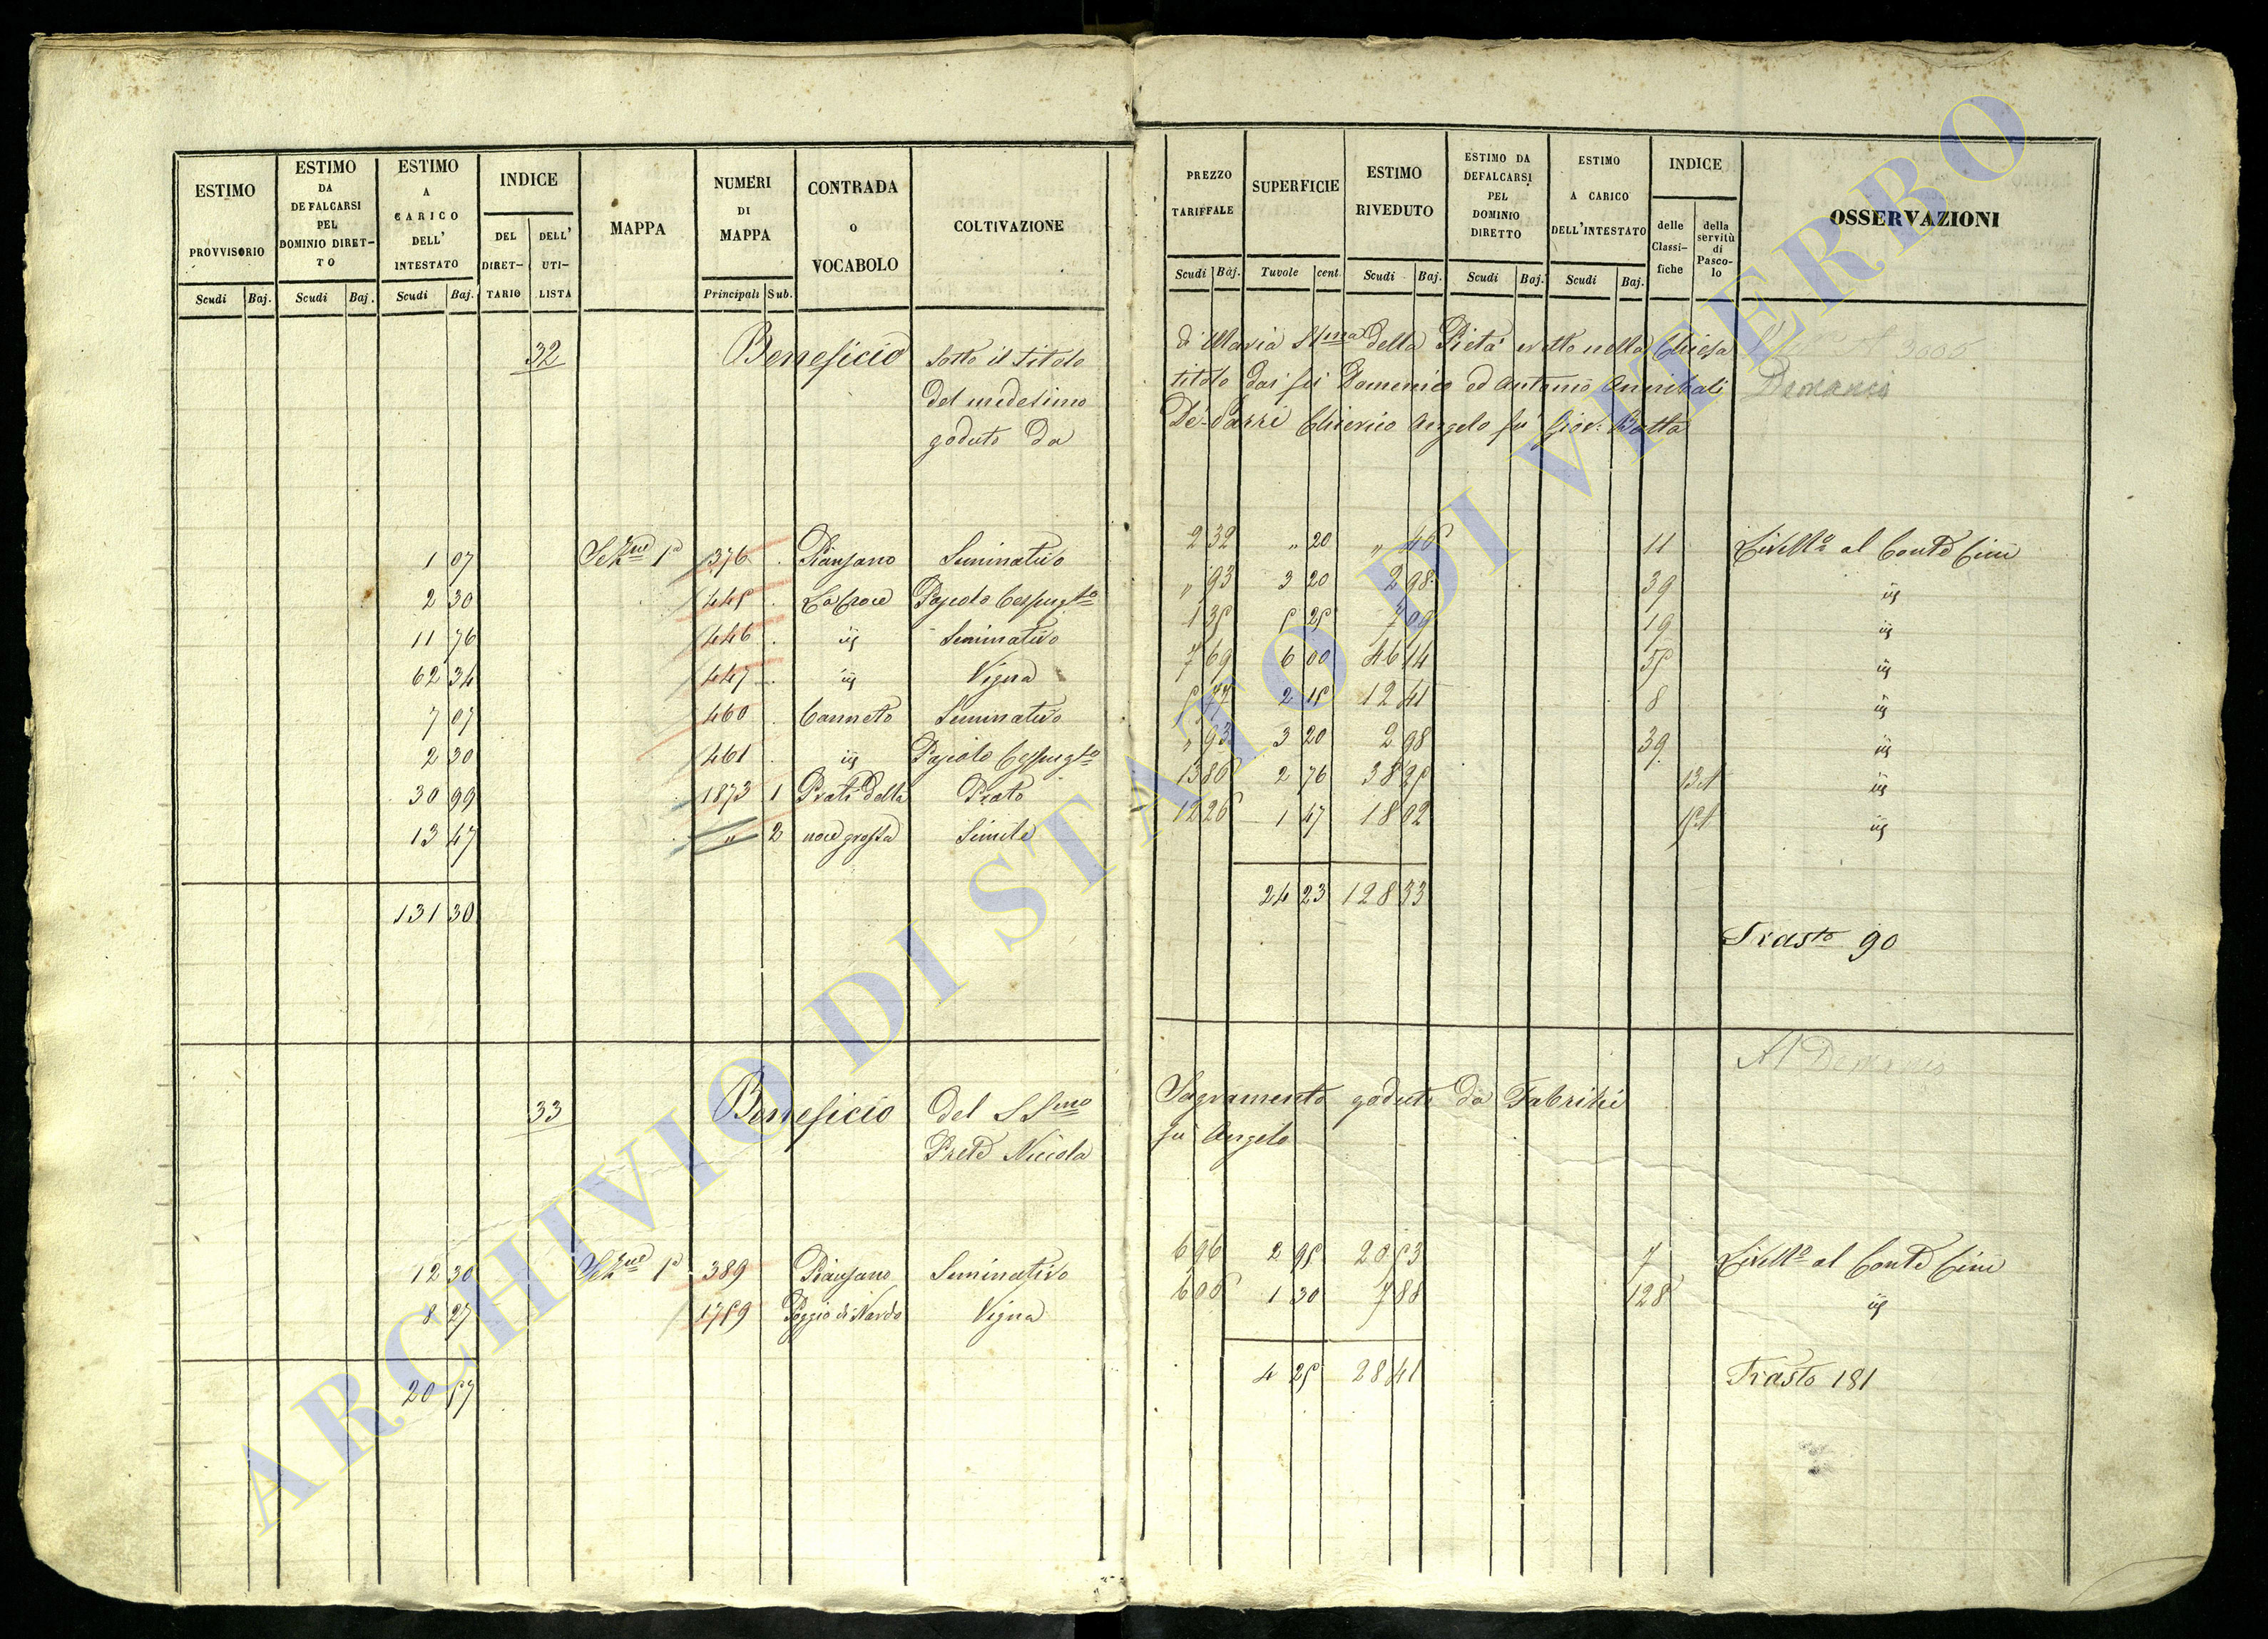 ESTIMO PROVVISORIO
Scudi Baj.
ESTIMO DA DEFALCARSI PEL DOMINIO DIRET-TO
Scudi Baj.
ESTIMO A CARICO DELL' INTESTATO
Scudi Baj.
INDICE
DEL DIRET-TARIO
DELL' UTI-LISTA
MAPPA
NUMERI DI MAPPA
Principali Sub.
CONTRADA o VOCABOLO
COLTIVAZIONE
PREZZO TARIFFALE
Scudi Baj.
SUPERFICIE
Tavole cent
ESTIMO RIVEDUTO
Scudi Baj.
ESTIMO DA DEFALCARSI PEL DOMINIO DIRETTO
Scudi Baj.
ESTIMO A CARICO DELL'INTESTATO
Scudi Baj.
INDICE
delle Classi-fiche
della servitù di Pasco-lo
OSSERVAZIONI
32 Beneficio sotto il titolo di Maria SSma della Pietà eretto nella Chiesa
del medesimo titolo dai fu Domenico ed Antonio Annibali Demanio
goduto da De-Parri Chierico Angelo fu Giov: Batta
1 07 Sezne 1a 1376 Piansano Seminativo 2 32 " 20 " 46 11 Livello al Conte Cini
2 30 445 La Croce Pascolo Cespugto " 93 3 20 2 98 39 iij
11 76 446 iij Seminativo 1 35 5 25 7 09 19 iij
62 34 447 iij Vigna 7 69 6 00 46 14 55 iij
7 07 460 Canneto Seminativo 5 77 2 15 12 41 8 iij
2 30 461 iij Pascolo Cespugto " 93 3 20 2 98 39 iij
30 99 1873 1 Prati della Prato 13 86 2 76 38 25 13 iij
13 47 " 2 noce grossa Simile 12 26 1 47 18 02 iij
131 30 24 23 128 33
Trasto 90
Al Demanio
33 Beneficio del SSmo Sagramento goduto da Fabrizi
Prete Nicola fu Angelo
12 30 Sezne 1a 389 Piansano Seminativo 6 96 2 95 20 53 7 Livello al Conte Cini
8 27 1759 Poggio di Nardo Vigna 6 06 1 30 7 88 128 iij
20 57 4 25 28 41 Trasto 181
ARCHIVIO DI STATO DI VITERBO